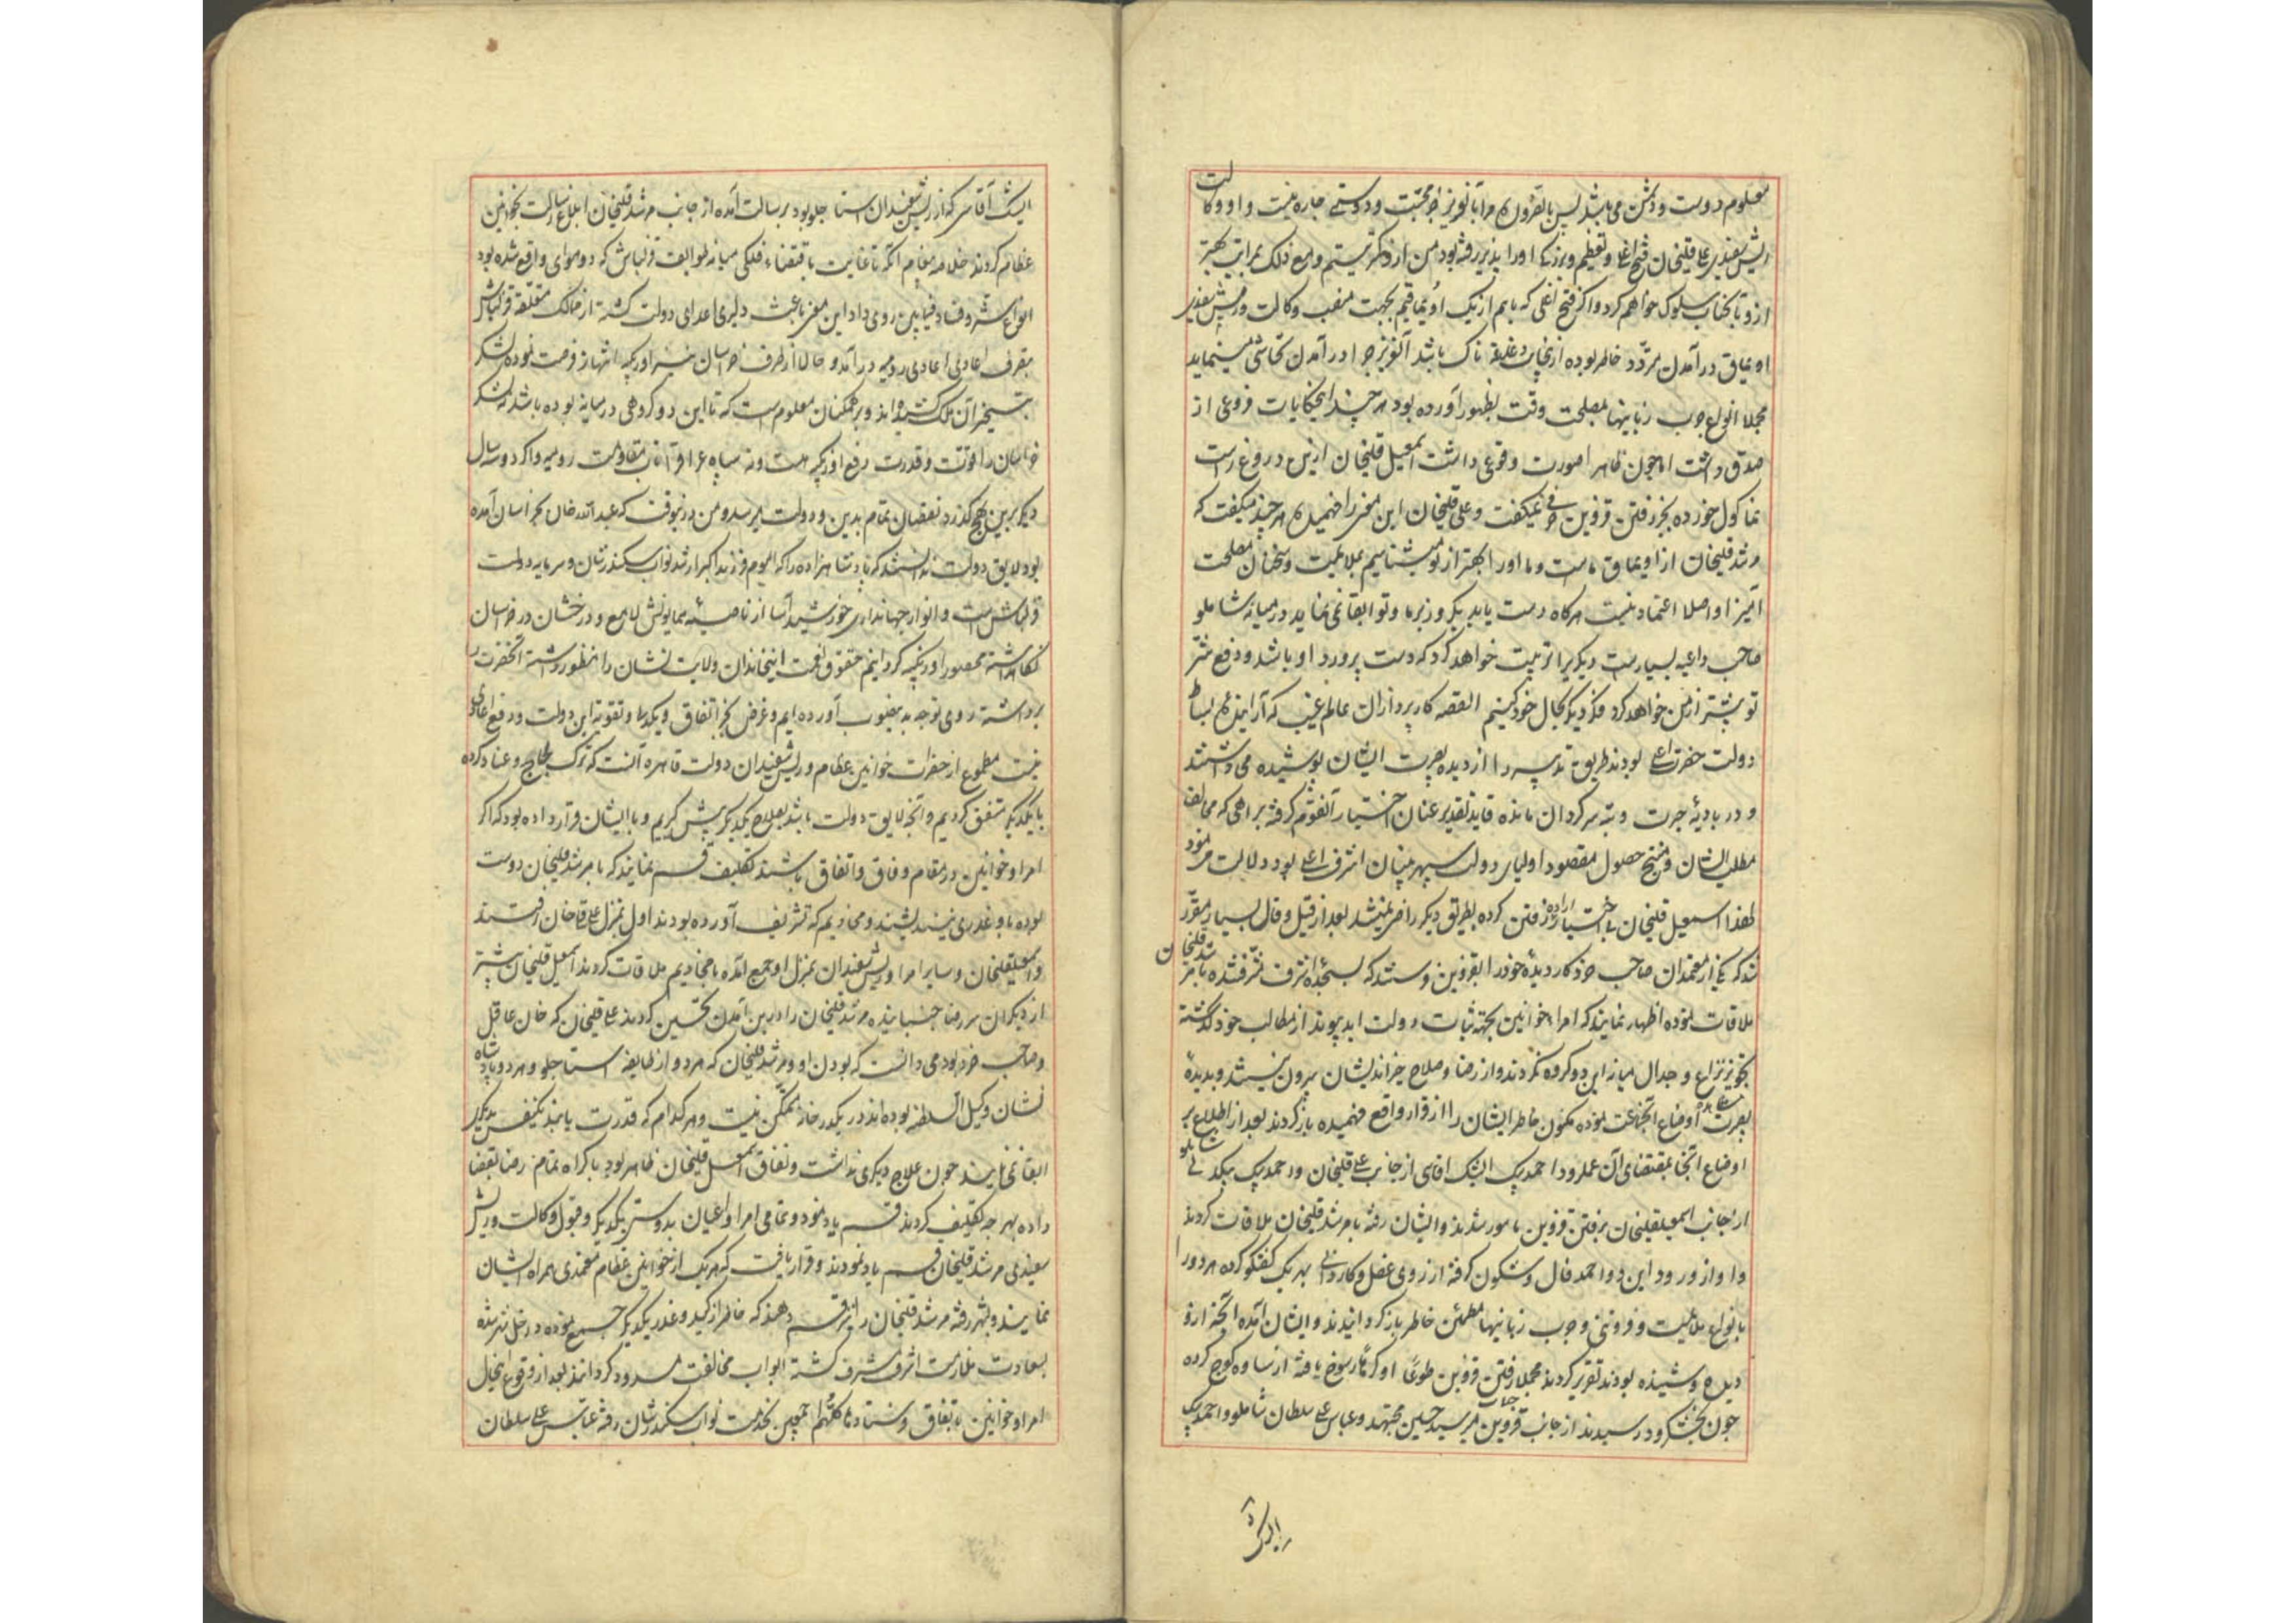 معلوم دوست و دشمن می باشد پس بالضروره مرا با تو جز محبت و دوستی چاره نیست و او وکالت
ریش سفیدی علیقلیخان فتح اغلی و تعظیم و بزرگی او را پذیرفته بود من از و کمتر نیستم و مع ذلک بمراتب بهتر
از و با تو سلوک خواهم کرد و اگر فتح اغلی که با هم از یک اویماقیم بجهت منصب وکالت و ریش سفیدی
اویماق در آمدن متردد خاطر بوده ازینجانب دغدغه ناک باشد در آمدن تحاشی مینماید
مجملا انواع چرب زبانیها بمصلحت وقت بظهور آورده بود هر چند اینحکایات فروغی از
صدق داشت اما چون ظاهرا صورت وقوعی داشت اسمعیل قلیخان ازین دروغ راست
نما کول خورده بجز رفتن قزوین حرفی نمیگفت و علی قلیخان این معنی را فهمیده هر چند میگفت که
مرشد قلیخان از اویماق ماست و ما او را بهتر از تو میشناسیم بملایمت و سخنان مصلحت
آمیز او اصلا اعتماد نیست هرگاه دست یابد یکروز بر ما و تو ابقا نمی نماید در میانه شاملو
صاحب داعیه بسیارست دیگریرا تربیت خواهد کرد که دست پرورد او باشد و دفع شر
تو پیشتر از من خواهد کرد فکر دیگر بحال خود کنیم القصه کارپردازان عالم غیب که آراینده بساط
دولت حضرت اعلی بودند طریق تدبیر را از دیده بصیرت ایشان پوشیده می داشتند
و در بادیۀ حیرت و تیه سرگردان مانده قاید تقدیر عنان اختیار آنقوم گرفته براهی که مخالف
مطلب ایشان و منتج حصول مقصود اولیای دولت سپهر بنیان اشرف اعلی بود دلالت می نمود
لهذا اسمعیل قلیخان بی اختیار اراده رفتن کرده بطریق دیگر راضی نمیشد بعد از قیل و قال بسیار مقرر
شد که یکی از معتمدان صاحب خرد کار دیدۀ خود را بقزوین فرستند که بسجده اشرف مشرف شده با مرشد قلیخان
ملاقات نموده اظهار نمایند که امرا و خوانین بجهة ثبات دولت ابد پیوند از مطالب خود گذشته
تجویز نزاع و جدال میانه این دو گروه نکردند و از رضا و صلاح خیر اندیشان بیرون نیستند و بدیدۀ
بصیرت مشاهده اوضاع آنجماعت نموده مکنون خاطر ایشان را از قرار واقع فهمیده باز گردند بعد از اطلاع بر
اوضاع آنجا بمقتضای آن عمل رود احمد بیک ایشیک اقاسی از جانب علی قلیخان و احمد بیک بیکدلی شاملو
از جانب اسمعیلقلیخان برفتن قزوین مامور شدند و ایشان رفته با مرشد قلیخان ملاقات کردند
و او از ورود این دو احمد فال و شگون گرفته از روی عقل و کاردانی بهر یک گفتگو کرده هر دو را
بانواع ملایمت و فروتنی و چرب زبانیها مطمئن خاطر باز گردانیدند و ایشان آمده آنچه ازو
دیده و شنیده بودند تقریر کردند مجملا رفتن قزوین طوعا او کرها رسوخ یافته از ساوه کوچ کرده
چون بخشکرود رسیدند از جانب قزوین جناب میر سید حسین مجتهد و عباس علی سلطان شاملو و احمد بیک
ایشیک آقاسی که از ریش سفیدان استاجلو بود برسالت آمده از جانب مرشد قلیخان ابلاغ رسالت بخوانین
عظام کردند خلاصه پیغام آنکه تا غایت باقتضاء فلکی میانه طوایف قزلباش که دو هوای واقع شده بود
انواع شر و فساد فیمابین روی داد این معنی باعث دلیری اعدای دولت گشته از ممالک متعلقه قزلباش
بتصرف اعادی رومیه در آمد و حالا از طرف خراسان نیز اوزبکیه انتهاز فرصت نموده لشکر
بتسخیر آن ملک کشیده اند و بر همگنان معلوم است که تا این دو گروهی در میانه بوده باشد نه لشکر
خراسان را قوت و قدرت دفع اوزبکیه هست و نه سپاه عراق را تاب مقاومت رومیه و اگر دو سه سال
دیگر برین نهج گذرد نقصان تمام بدین و دولت میرسد و من درینوقت که عبدالله خان بخراسان آمده
بود لایق دولت ندانستم که پادشاهزاده را که الیوم فرزند اکبر ارشد نواب سکندرشان و سرمایه دولت
قزلباش است و انوار جهانداری خورشید آسا از ناصیۀ همایونش لامع و درخشان در خراسان
نگاهداشته محصور اوزبکیه گردانیم حقوق نعمت اینخاندان ولایت نشان را منظور داشته آنحضرت را
برداشته روی توجه بدینصوب آورده ایم و غرض بجز اتفاق و یکدلی و تقویت این دولت و دفع اعادی
نیست مطموع از حضرات خوانین عظام و ریش سفیدان دولت قاهره آنست که ترک لجاج و عناد کرده
با یکدیگر متفق گردیم و آنچه لایق دولت باشد بصلاح یکدیگر پیش گیریم و با ایشان قرار داده بود که اگر
امرا و خوانین در مقام وفاق و اتفاق باشند تکلیف قسم نمایند که با مرشد قلیخان دوست
بوده با و غدری نیندیشند و مخادیم که تشریف آورده بودند اول بمنزل علی قلیخان رفتند
و اسمعیلقلیخان و سایر امرا و ریش سفیدان بمنزل او جمع آمده با مخادیم ملاقات کردند اسمعیل قلیخان پیشتر
از دیگران سر رضا جنبانیده مرشد قلیخان را درین آمدن تحسین کردند علی قلیخان که خان عاقل
و صاحب خرد بود می دانست که بودن او و مرشد قلیخان که هر دو از طایفه استاجلو و هر دو پادشاه
نشان و وکیل السلطنه بوده اند در یکدرخانه ممکن نیست و هر کدام که قدرت یابند یکنفس بدیگری
ابقا نمی نمایند چون علاج دیگری نداشت و نفاق اسمعیل قلیخان ظاهر بود با کراه تمام رضا بقضا
داده بهر چه تکلیف کردند قسم یاد نمود و تمامی امرا و اعیان بدوستی یکدیگر و قبول وکالت و ریش
سفیدی مرشد قلیخان قسم یاد نمودند و قرار یافت که هر یک از خوانین عظام معتمدی همراه ایشان
نمایند و بشهر رفته مرشد قلیخان را نیز قسم دهند که خاطر از کید و غدر یکدیگر جمع نموده داخل شهر شده
بسعادت ملازمت اشرف مشرف گشته ابواب مخالفت مسدود گردانند بعد از وقوع اینحال
امرا و خوانین باتفاق فرستاده ها کلهم اجمعین بخدمت نواب سکندرشان رفته عباس علی سلطان